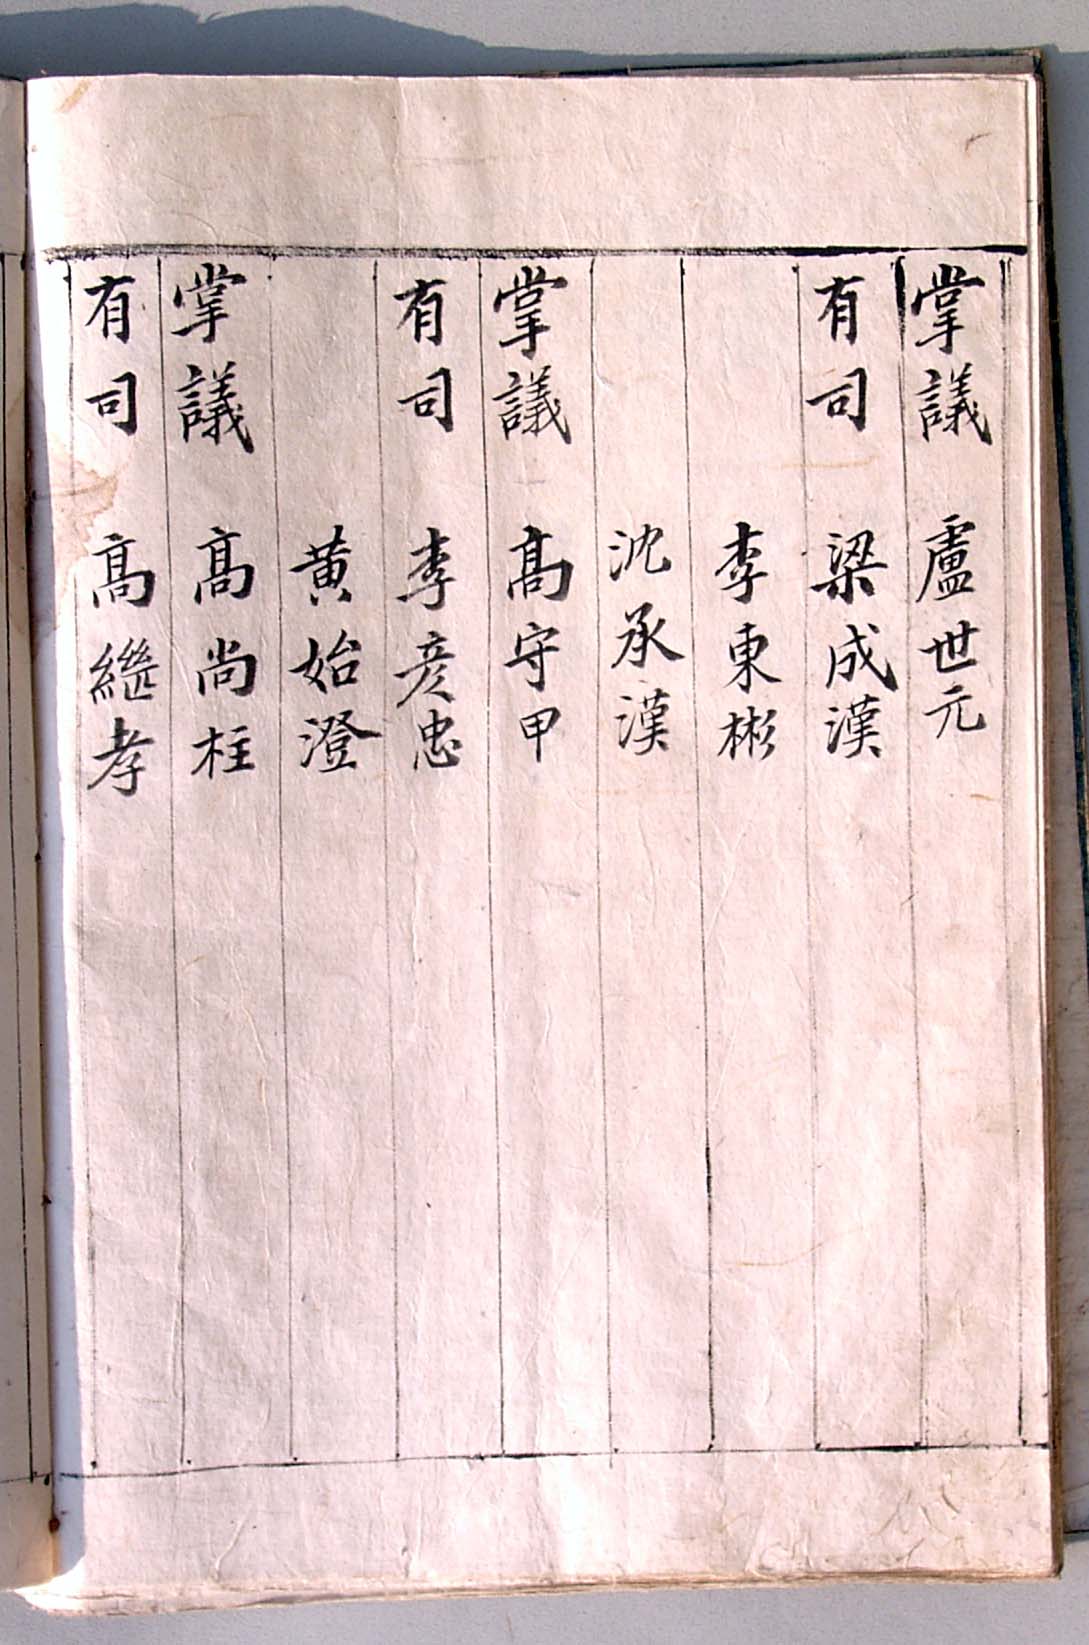 掌議 盧世元
有司 梁成漢
李東彬
沈承漢
掌議 高守甲
有司 李彦忠
黃始澄
掌議 高尚柱
有司 高繼孝